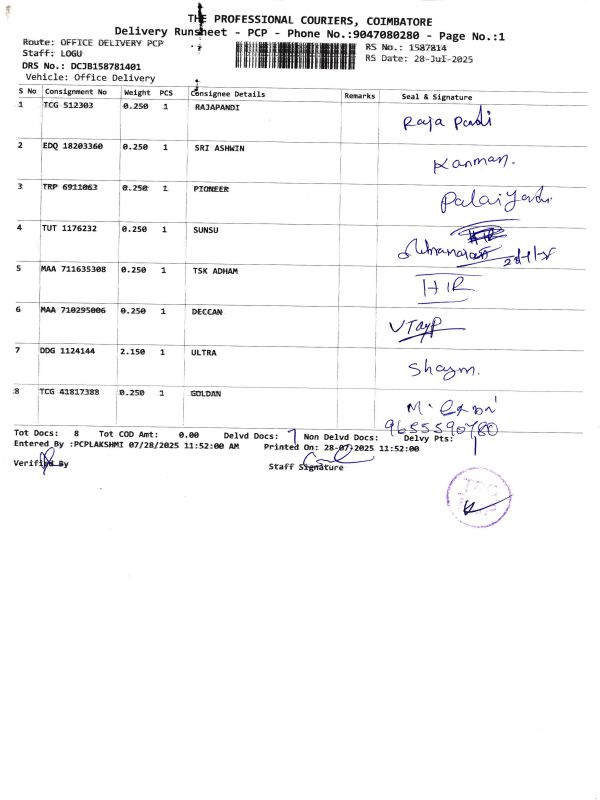 THE PROFESSIONAL COURIERS, COIMBATORE
Delivery Runsheet - PCP - Phone No.:9047080280 - Page No.:1
Route: OFFICE DELIVERY PCP
RS No.: 1587814
Staff: LOGU
RS Date: 28-Jul-2025
DRS No.: DCJB158781401
Vehicle: Office Delivery
S No Consignment No Weight PCS Consignee Details Remarks Seal & Signature
1 TCG 512303 0.250 1 RAJAPANDI Raja Pandi
2 EDQ 18203360 0.250 1 SRI ASHWIN Kannan.
3 TRP 6911063 0.250 1 PIONEER
4 TUT 1176232 0.250 1 SUNSU
5 MAA 711635308 0.250 1 TSK ADHAM
6 MAA 710295006 0.250 1 DECCAN
7 DDG 1124144 2.150 1 ULTRA Shaym.
8 TCG 41817388 0.250 1 GOLDAN
9655590780
Tot Docs: 8 Tot COD Amt: 0.00 Delvd Docs: 7 Non Delvd Docs: Delvy Pts: 1
Entered By :PCPLAKSHMI 07/28/2025 11:52:00 AM Printed On: 28-07-2025 11:52:00
Verified By
Staff Signature